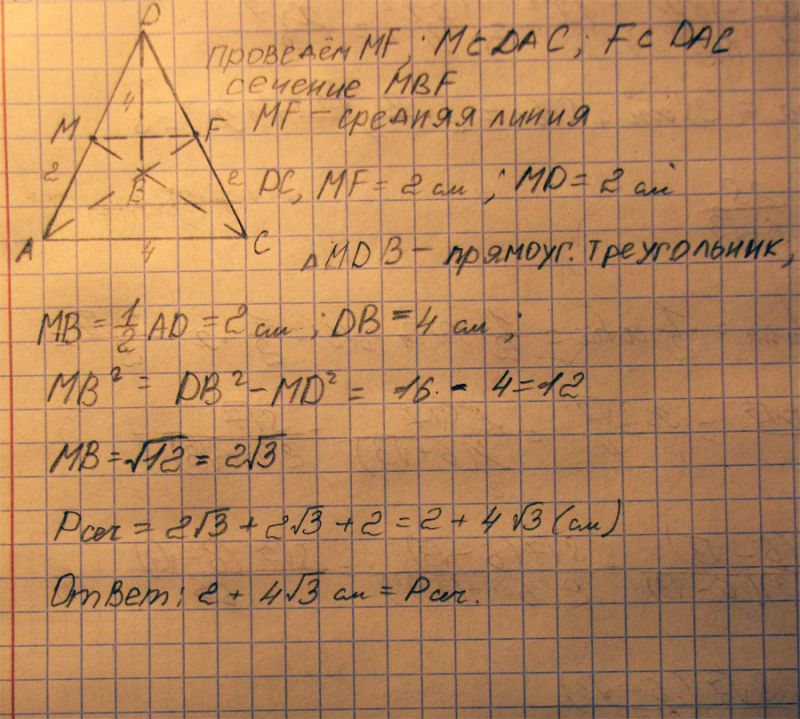 D
проведём MF, : M ⊂ DAC ; F ⊂ DAC
сечение MBF
4
MF – средняя линия
M F
2 B 2
DC, MF = 2 см ; MD = 2 см
A 4 C
△MDB – прямоуг. треугольник,
MB = 1/2 AD = 2 см ; DB = 4 см ;
MB² = DB² – MD² = 16 - 4 = 12
MB = √12 = 2√3
Pсеч = 2√3 + 2√3 + 2 = 2 + 4√3 (см)
Ответ: 2 + 4√3 см = Pсеч.